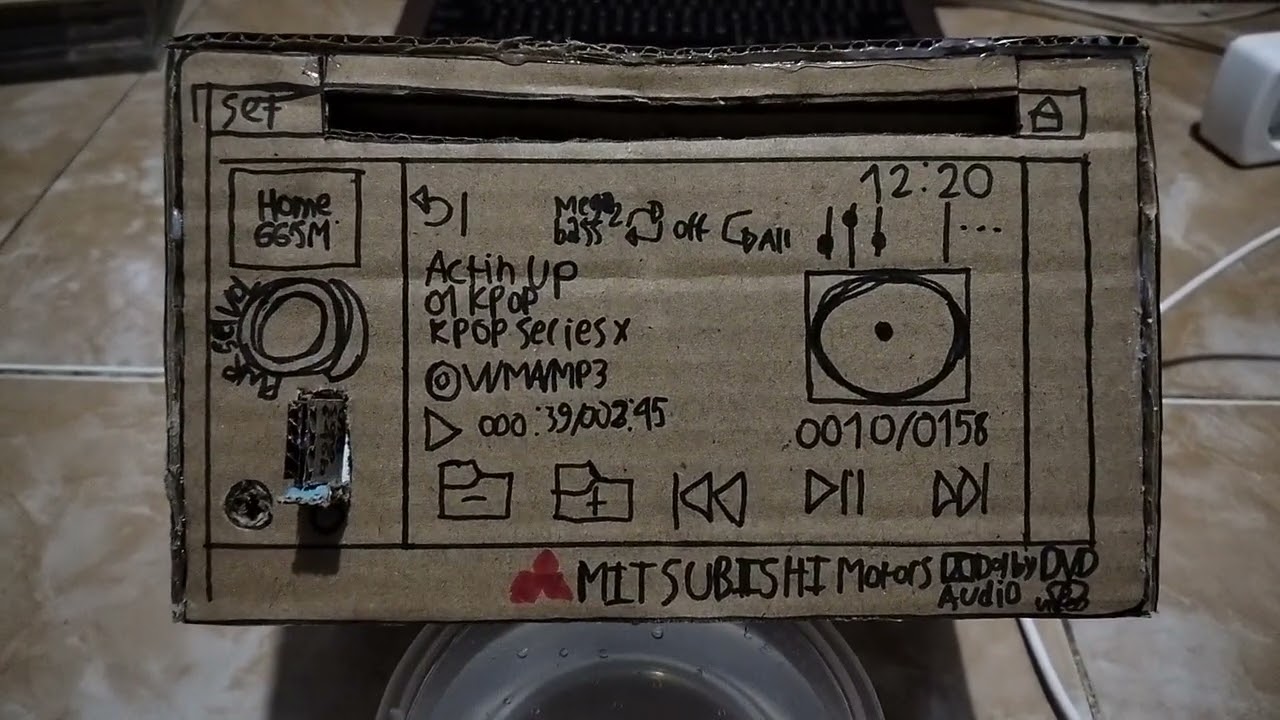 Set
12:20
Home
665M
Mega
bass
Off
All
Actin Up
01 KPOP
KPOP Series x
WMA/MP3
000:39/002:45
0010/0158
MITSUBISHI Motors Dolby DVD
Audio